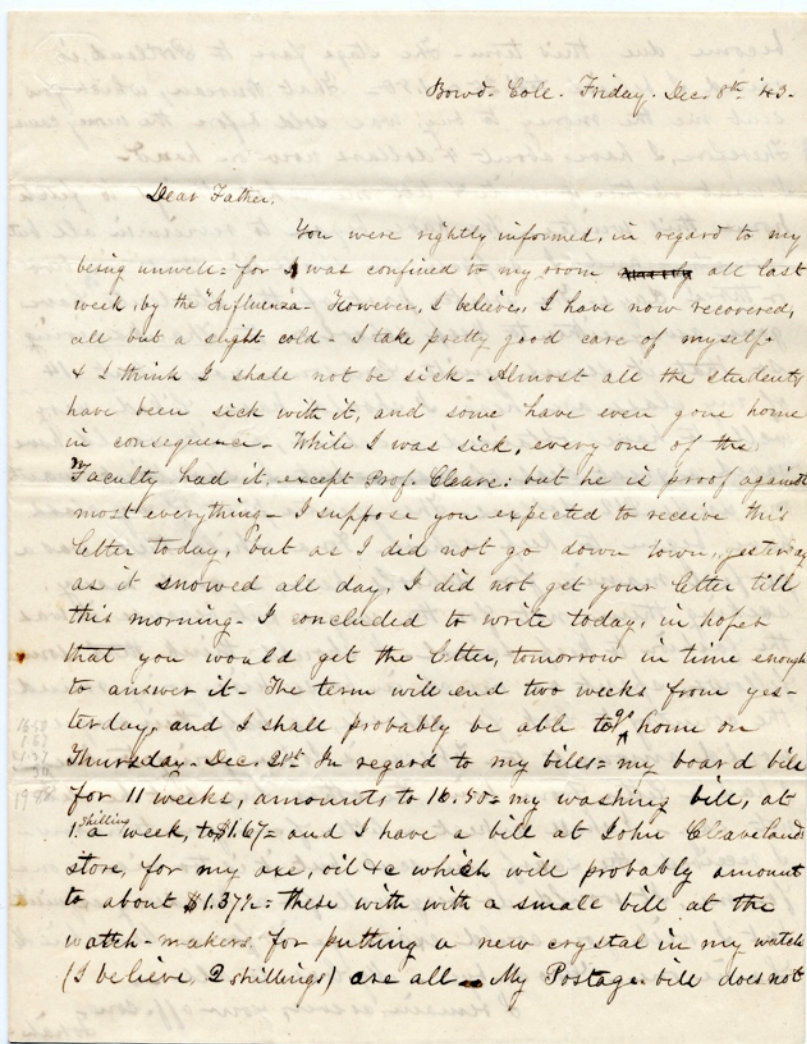 Bowd. Coll. Friday. Dec. 8th '43.
Dear Father,
You were rightly informed, in regard to my
being unwell = for I was confined to my room all last
week, by the "Influenza - However, I believe, I have now recovered,
all but a slight cold - I take pretty good care of myself
& I think I shall not be sick - Almost all the students
have been sick with it, and some have even gone home
in consequence - While I was sick, every one of the
Faculty had it, except Prof. Cleave: but he is proof against
most everything - I suppose you expected to receive this
letter today, but as I did not go down town, yesterday
as it snowed all day, I did not get your letter till
this morning - I concluded to write today, in hopes
that you would get the letter, tomorrow in time enough
to answer it - The term will end two weeks from yes-
terday, and I shall probably be able to go home on
Thursday - Dec. 21st In regard to my bills = my board bill
for 11 weeks, amounts to 16.50 = my washing bill, at
1. shilling a week, to $1.67 = and I have a bill at John Cleaveland's
store, for my axe, oil &c which will probably amount
to about $1.37½ = these with with a small bill at the
watch-makers for putting a new crystal in my watch
(I believe, 2 shillings) are all - My Postage bill does not
16.50
1.67
1.37
19.88